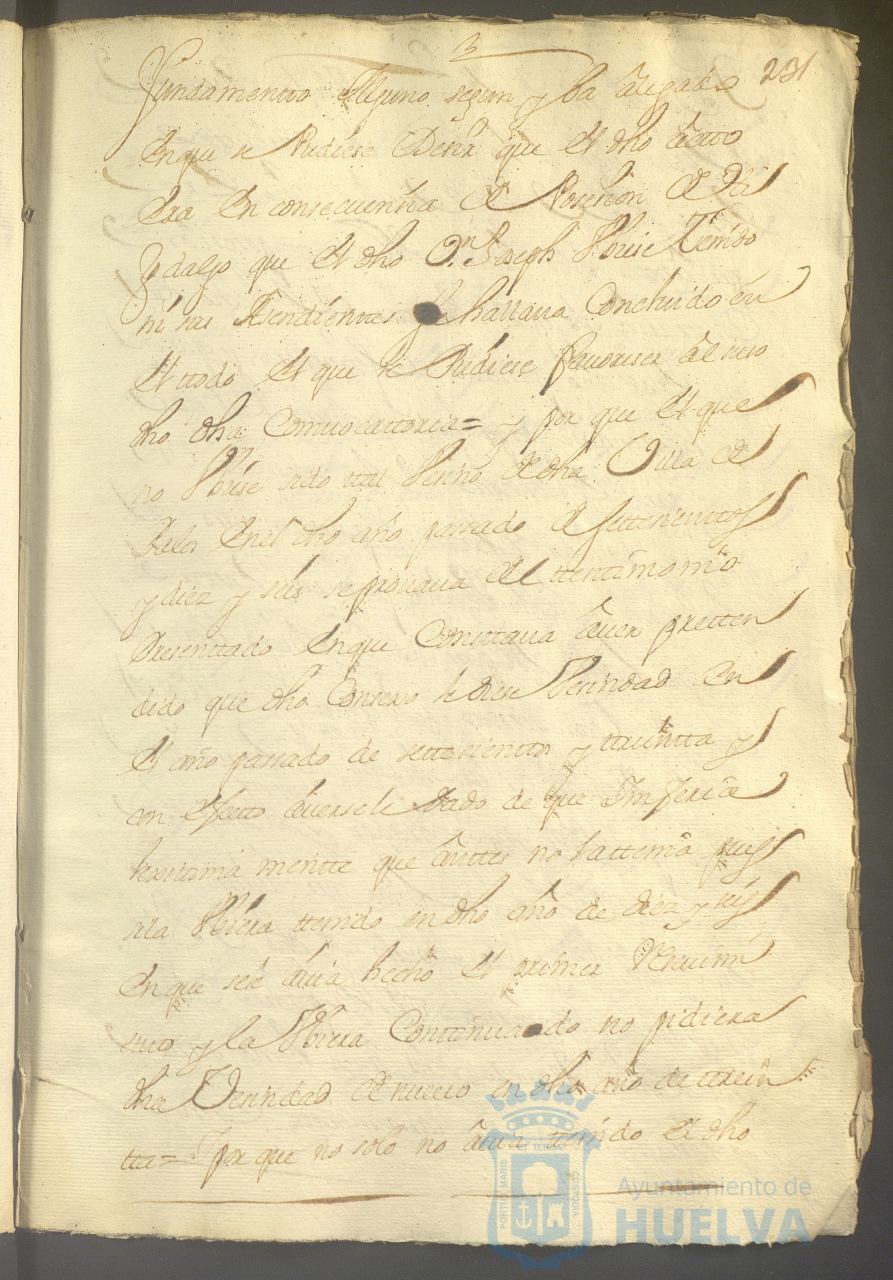 3
231
fundamentto alguno segun y ba alegado
En que se Pudiese Desir que el dho acto
Era En consecuenzia de Posesion de
ydalgo que el dho Dn. Joseph Vbiese Tenido
ni sus Asendienttes Se hallaua Concluido en
el ttodo el que le Pudiese fauoreser al suso
dho dha Comuocattoria = y por que el que
no Vbiese sido ttal Vezino de dha Villa de
En el dho año passado de settesienttos
y diez y seis se prouaua del ttesttimonio
Presenttado En que Consttaua auer pretten
dido que dho Consexo le diese Vezindad En
el año passado de settesienttos y ttreintta y
con efectto auersele dado de que Inferia
lexitima mentte que anttes no la ttenia pues
si la Vbiera ttenido en dho año de diez y seis
En que se le auia hecho el primer Reciuimi
entto y la Vbiera Continuado no pidiera
dha Vezindad de nueuo en dho año de ttrein
tta = Y por que no solo no auia ttenido el dho
PORTUS MARIS ET TERRAE CUSTODIA
Ayuntamiento de
HUELVA